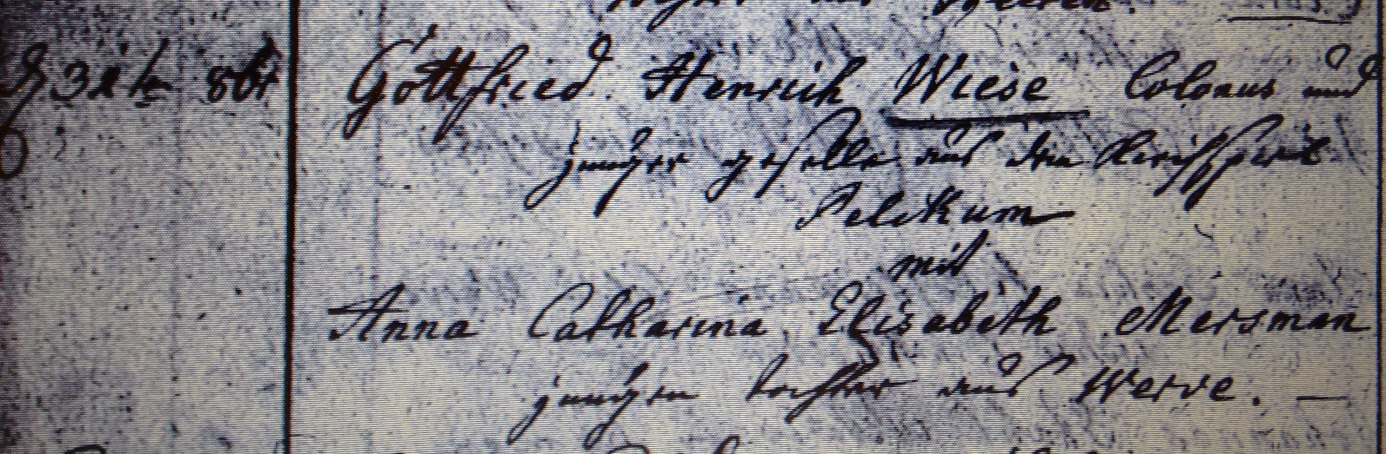 aus Heeren.
d 31t 8br Gottfried Henrich Wiese Colonus und
junger geselle aus dem Kirchspiel
Pelckum
mit
Anna Catharina Elisabeth Mersman
jungen tochter aus Werve. —